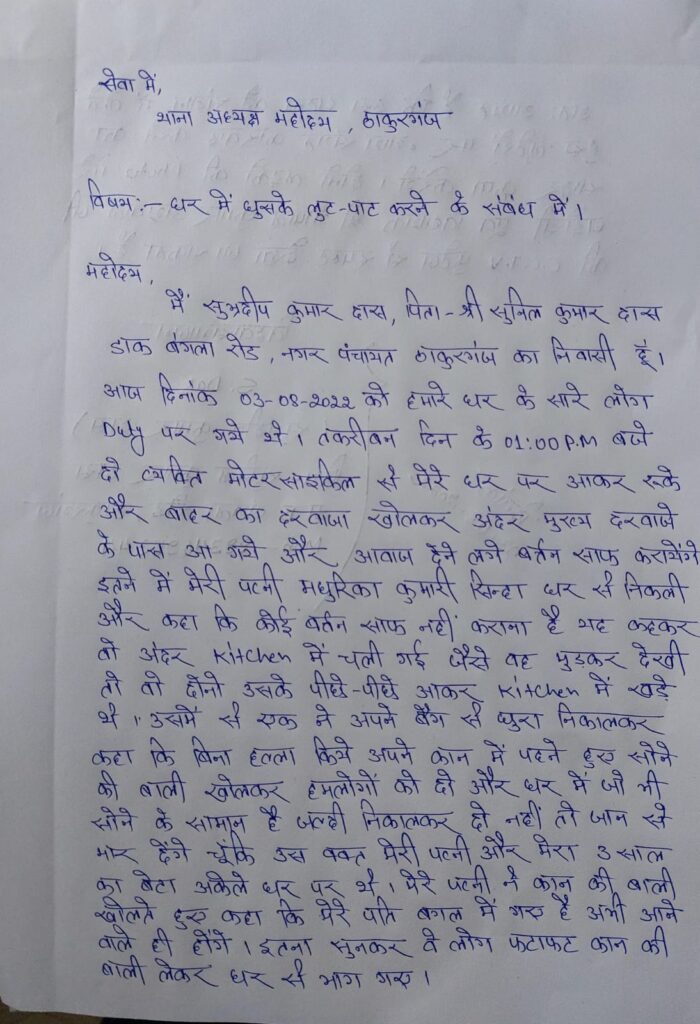 सेवा में,
थाना अध्यक्ष महोदय, ठाकुरगंज
विषय:- घर में घुसके लुट-पाट करने के संबंध में।
महोदय,
मैं सुभ्रदीप कुमार दास, पिता-श्री सुनिल कुमार दास
डाक बंगला रोड, नगर पंचायत ठाकुरगंज का निवासी हूँ।
आज दिनांक 03-08-2022 को हमारे घर के सारे लोग
Duty पर गये थे। तकरीबन दिन के 01:00 P.M बजे
दो व्यक्ति मोटरसाइकिल से मेरे घर पर आकर रूके
और बाहर का दरवाजा खोलकर अंदर मुख्य दरवाजे
के पास आ गये और आवाज देने लगे बर्तन साफ करायेंगे
इतने में मेरी पत्नी मधुरिका कुमारी सिन्हा घर से निकली
और कहा कि कोई बर्तन साफ नहीं कराना है यह कहकर
वो अंदर Kitchen में चली गई जैसे वह मुड़कर देखी
तो वो दोनो उसके पीछे-पीछे आकर Kitchen में खड़े
थे। उसमें से एक ने अपने बैग से छुरा निकालकर
कहा कि बिना हल्ला किये अपने कान में पहने हुए सोने
की बाली खोलकर हमलोगों को दो और घर में जो भी
सोने के सामान है जल्दी निकालकर दो नहीं तो जान से
मार देंगे चूंकि उस वक्त मेरी पत्नी और मेरा 3 साल
का बेटा अकेले घर पर थे। मेरे पत्नी ने कान की बाली
खोलते हुए कहा कि मेरे पति बगल में गए हैं अभी आने
वाले ही होंगे। इतना सुनकर वे लोग फटाफट कान की
बाली लेकर घर से भाग गए।